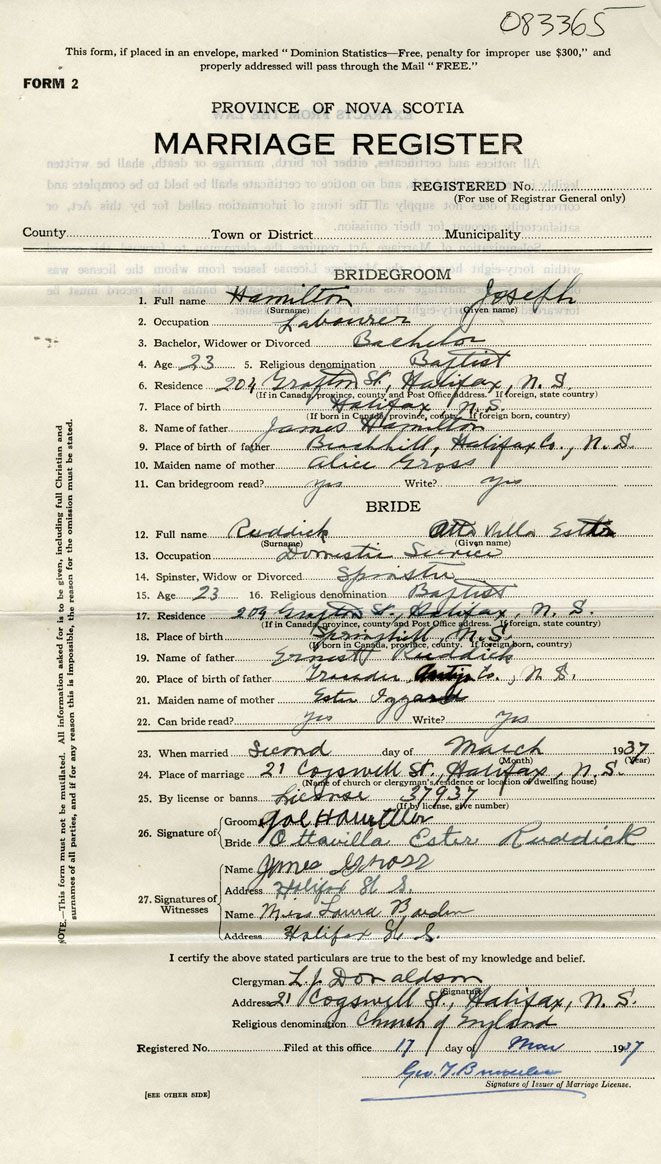 083365
This form, if placed in an envelope, marked "Dominion Statistics—Free, penalty for improper use $300," and
properly addressed will pass through the Mail "FREE."
FORM 2
PROVINCE OF NOVA SCOTIA
MARRIAGE REGISTER
REGISTERED No.
(For use of Registrar General only)
County Town or District Municipality
BRIDEGROOM
1. Full name Hamilton Joseph
(Surname) (Given name)
2. Occupation Labourer
3. Bachelor, Widower or Divorced Bachelor
4. Age 23 5. Religious denomination Baptist
6. Residence 209 Grafton St, Halifax, N. S.
(If in Canada, province, county and Post Office address. If foreign, state country)
7. Place of birth Halifax, N. S.
(If born in Canada, province, county. If foreign born, country)
8. Name of father James Hamilton
9. Place of birth of father Beechhill, Halifax Co., N. S.
10. Maiden name of mother Alice Gross
11. Can bridegroom read? yes Write? yes
BRIDE
12. Full name Ruddick Villa Esther
(Surname) (Given name)
13. Occupation Domestic Service
14. Spinster, Widow or Divorced Spinster
15. Age 23 16. Religious denomination Baptist
17. Residence 209 Grafton St, Halifax, N. S.
(If in Canada, province, county and Post Office address. If foreign, state country)
18. Place of birth Springhill, N. S.
(If born in Canada, province, county. If foreign born, country)
19. Name of father Ernest Ruddick
20. Place of birth of father Co., N. S.
21. Maiden name of mother Ester Izzard
22. Can bride read? yes Write? Yes
23. When married Second day of March 1937
(Month) (Year)
24. Place of marriage 21 Cogswell St, Halifax, N. S.
(Name of church or clergyman's residence or location of dwelling house)
25. By license or banns License 37937
(If by license, give number)
26. Signature of
Groom Joe
Bride Ottavilla Ester Ruddick
27. Signatures of Witnesses
Name James Gross
Address Halifax N. S.
Name Miss Laura
Address Halifax N. S.
I certify the above stated particulars are true to the best of my knowledge and belief.
Clergyman L. J. Donaldson
(Signature)
Address 21 Cogswell St, Halifax, N. S.
Religious denomination Church of England
Registered No. Filed at this office 17 day of Mar 1937
Geo. T.
Signature of Issuer of Marriage License.
[SEE OTHER SIDE]
NOTE.—This form must not be mutilated. All information asked for is to be given, including full Christian and
surnames of all parties, and if for any reason this is impossible, the reason for the omission must be stated.